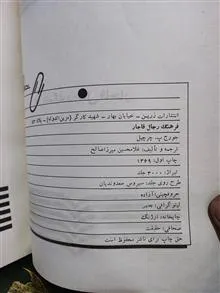 انتشارات زرین - خیابان بهار - شهید کارگر (مزین‌الدوله) - پلاک
فرهنگ رجال قاجار
جورج پ. چرچیل
ترجمه و تألیف: غلامحسین میرزاصالح
چاپ اول: ۱۳۶۹
تیراژ: ۳۰۰۰ جلد
طرح روی جلد: سیروس صفدونیان
حروفچینی: آزاده
لیتوگرافی:
چاپخانه: ارژنگ
صحافی: حقیقت
حق چاپ برای ناشر محفوظ است